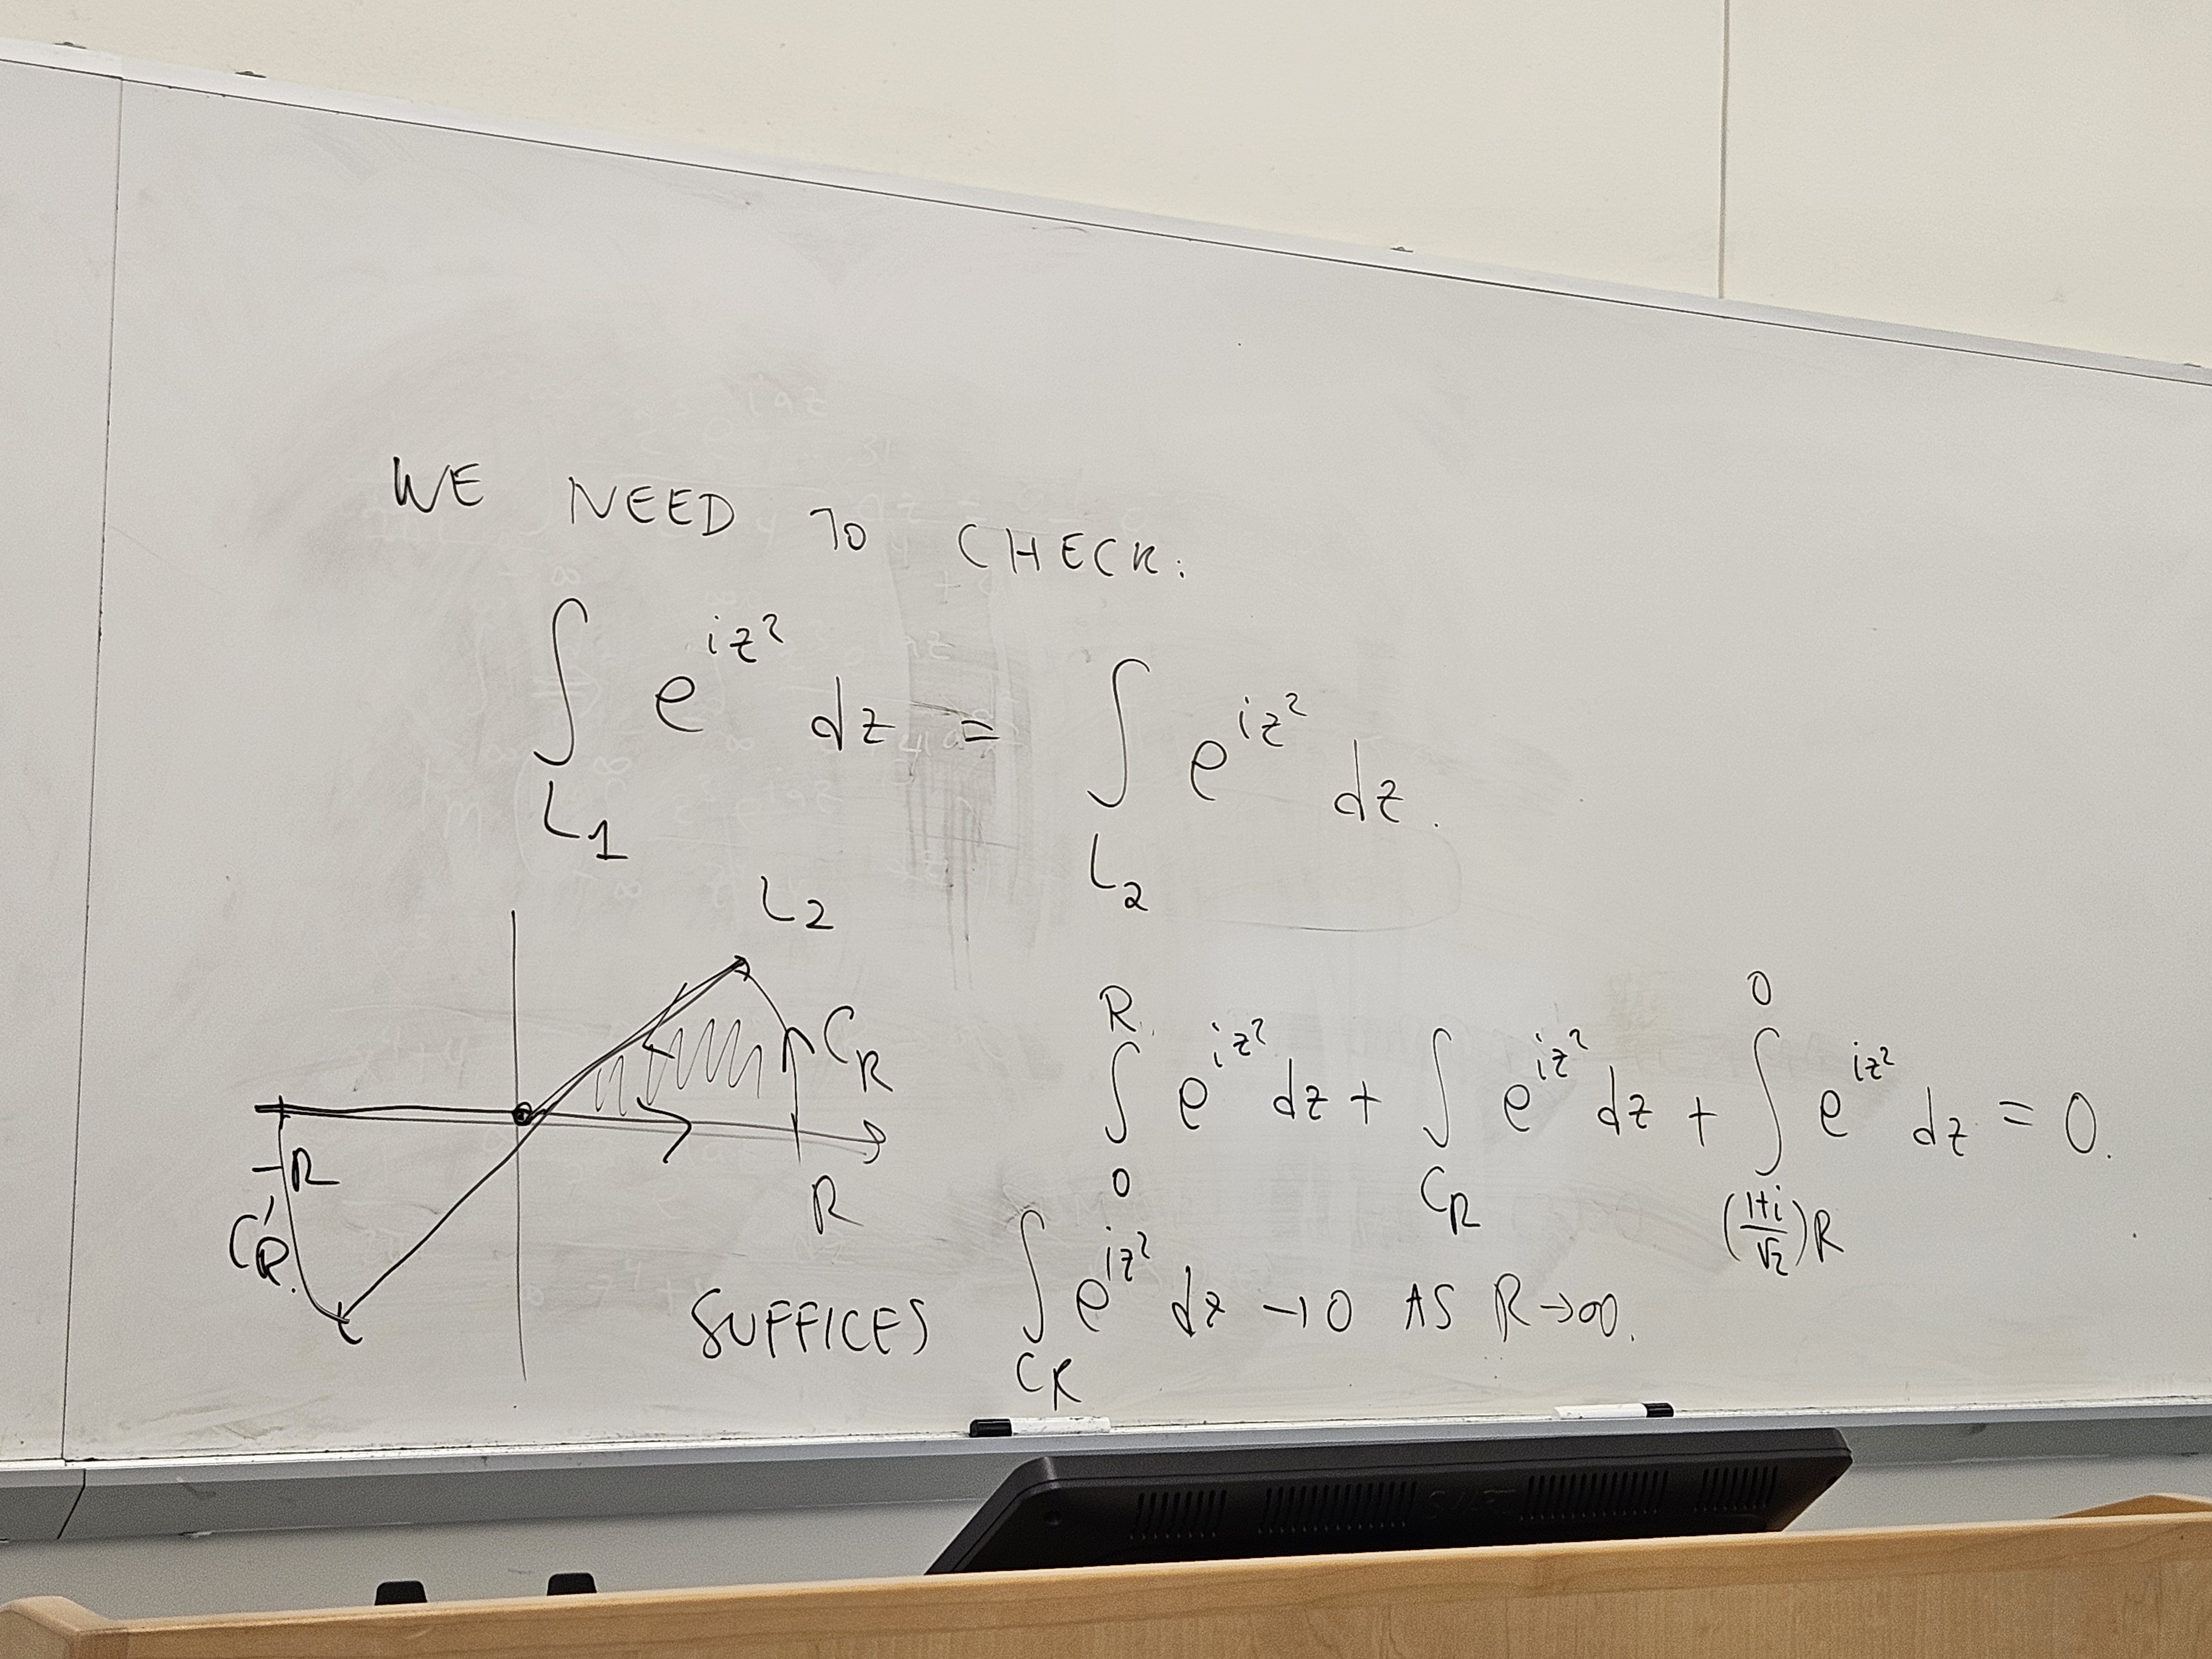 WE NEED TO CHECK:
∫_{L_1} e^{iz^2} dz = ∫_{L_2} e^{iz^2} dz.
L_2
C_R
-R
R
C'_R.
∫_0^R e^{iz^2} dz + ∫_{C_R} e^{iz^2} dz + ∫_{(\frac{1+i}{√2})R}^0 e^{iz^2} dz = 0.
SUFFICES ∫_{C_R} e^{iz^2} dz → 0 AS R → ∞.